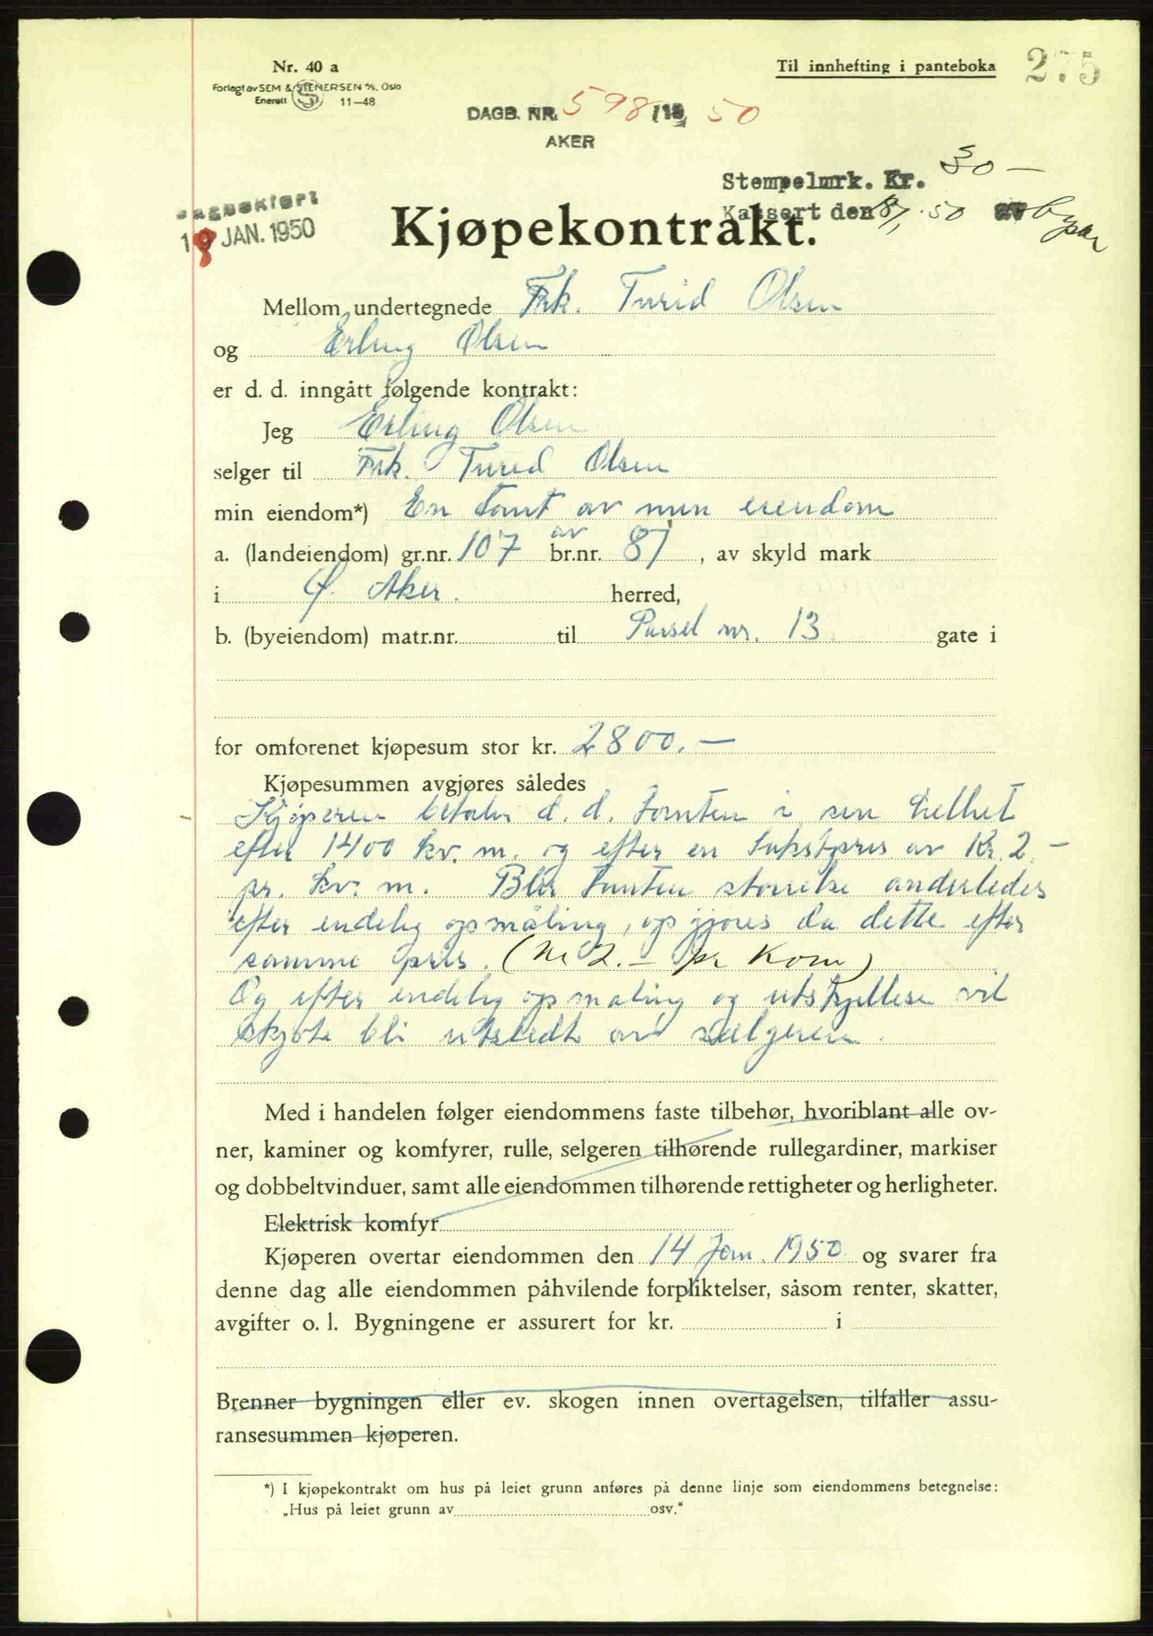 Nr. 40 a
Forlagt av SEM & STENERSEN A/S, Oslo
Enerett S 11-48
Til innhefting i panteboka
275
DAGB. NR. 598/19 50
AKER
Stempelmrk. Kr. 30 —
Kassert den 18/1. 50 av
Dagbokført
19 JAN. 1950
Kjøpekontrakt.
Mellom undertegnede Frk. Turid Olsen
og Erling Olsen
er d. d. inngått følgende kontrakt:
Jeg Erling Olsen
selger til Frk. Turid Olsen
min eiendom*) En tomt av min eiendom
a. (landeiendom) gr.nr. 107 av br.nr. 87, av skyld mark
i Ø. Aker. herred,
b. (byeiendom) matr.nr. til Parsel nr. 13 gate i
for omforenet kjøpesum stor kr. 2800.—
Kjøpesummen avgjøres således
Kjøperen betaler d. d. Tomten i sin helhet
efter 1400 kv. m. og efter en av Kr. 2.—
pr. kv. m. Blir Tomten størrelse anderledes
efter endelig opmåling, opgjøres da dette efter
samme pris. (Kr 2.— pr Kvm)
Og efter endelig opmåling og utskyllelse vil
skjøte bli utstedt av sælgeren.
Med i handelen følger eiendommens faste tilbehør, hvoriblant alle ov-
ner, kaminer og komfyrer, rulle, selgeren tilhørende rullegardiner, markiser
og dobbeltvinduer, samt alle eiendommen tilhørende rettigheter og herligheter.
Elektrisk komfyr
Kjøperen overtar eiendommen den 14 Jan. 1950 og svarer fra
denne dag alle eiendommen påhvilende forpliktelser, såsom renter, skatter,
avgifter o. l. Bygningene er assurert for kr. i
Brenner bygningen eller ev. skogen innen overtagelsen, tilfaller assu-
ransesummen kjøperen.
*) I kjøpekontrakt om hus på leiet grunn anføres på denne linje som eiendommens betegnelse:
„Hus på leiet grunn av osv.“